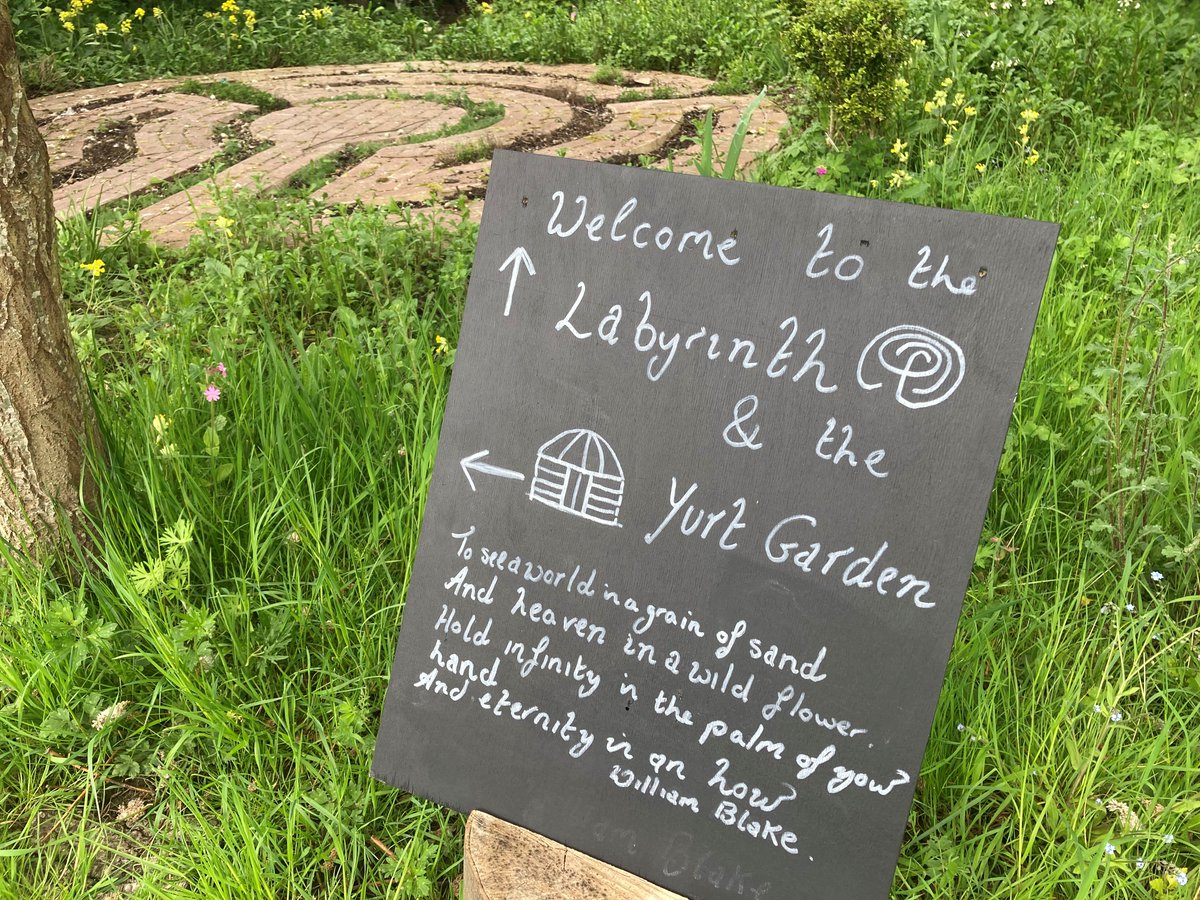 Welcome to the
Labyrinth
& the
Yurt Garden
To see a world in a grain of sand
And heaven in a wild flower.
Hold infinity in the palm of your
hand
And eternity in an hour
William Blake.
am Blake